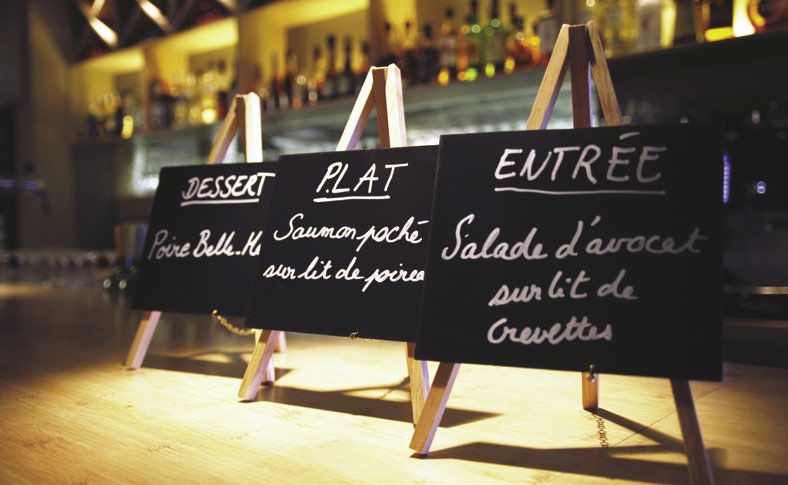 DESSERT
Poire Belle-
PLAT
Saumon poché
sur lit de
ENTRÉE
Salade d'avocat
sur lit de
Crevettes